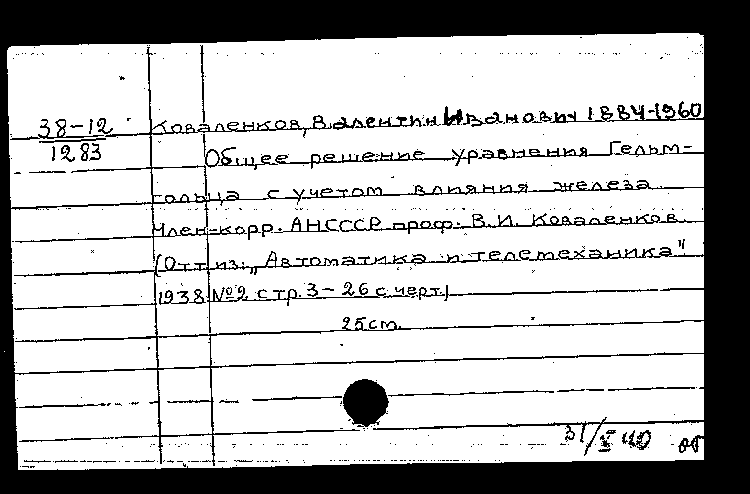 38-12
1283
Коваленков, Валентин Иванович 1884-1960
Общее решение уравнения Гельм-
гольца с учетом влияния железа
Член-корр. АНСССР проф. В.И. Коваленков
(Отт из: „Автоматика и телемеханика"
1938 №2 стр. 3-26 с черт.)
25cm.
31/V 40